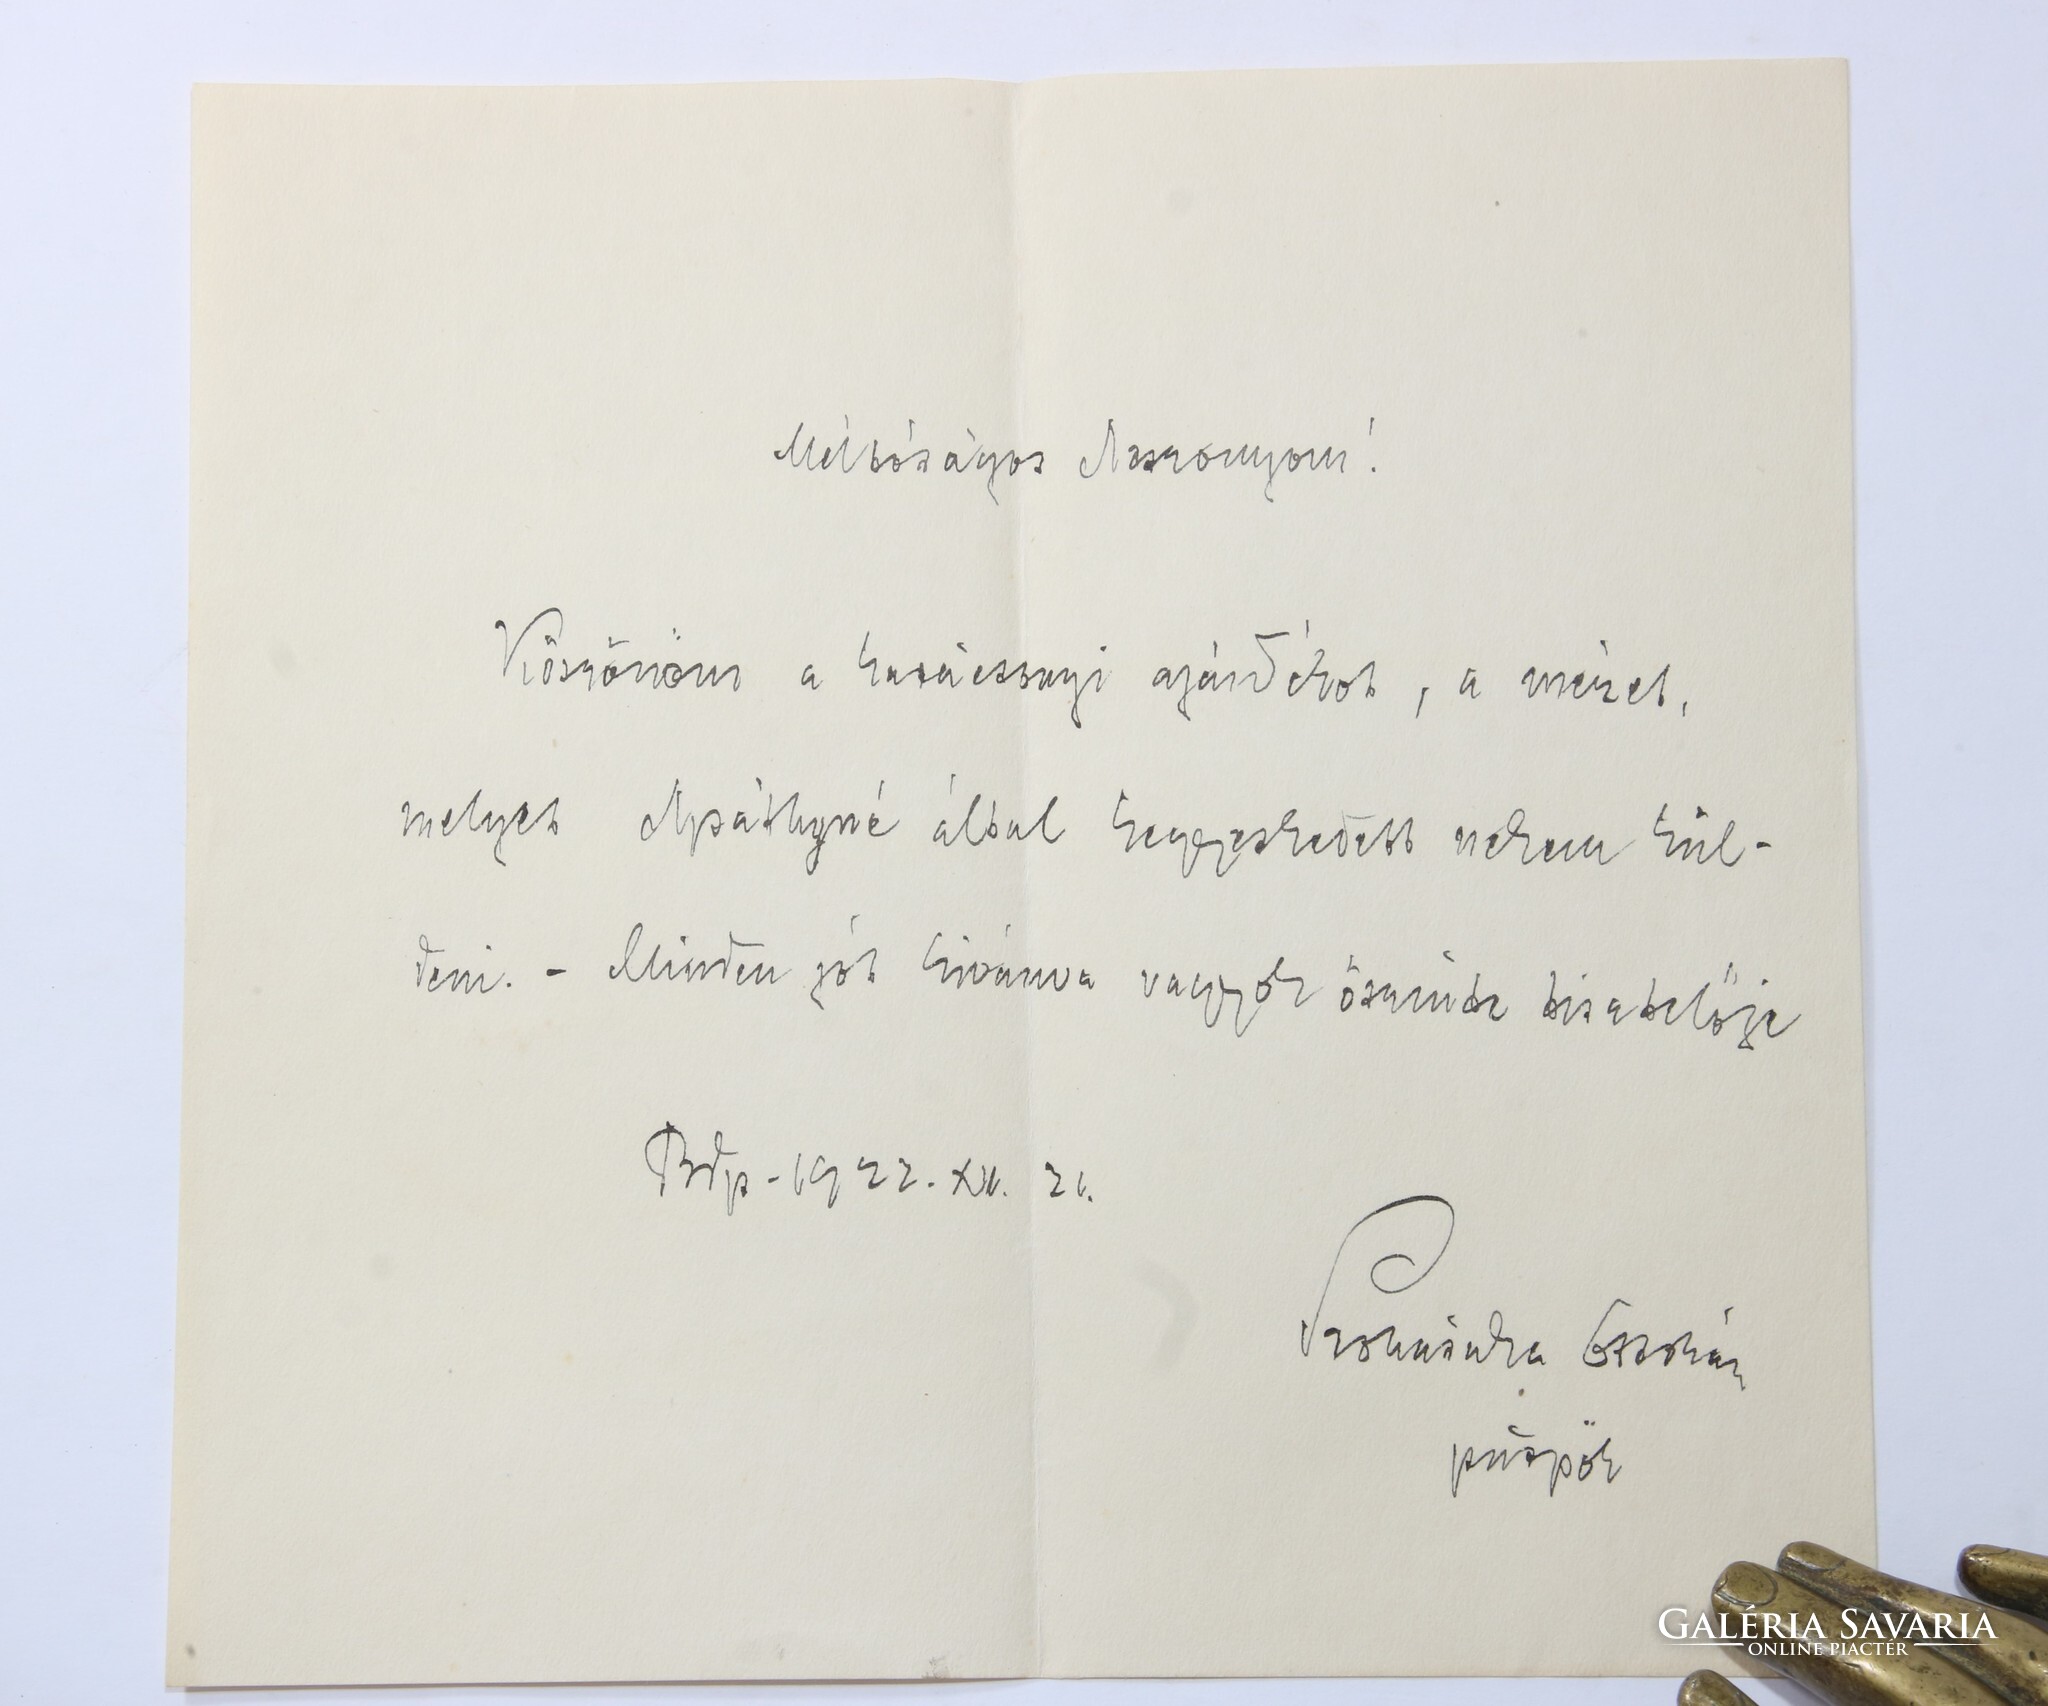 Méltóságos Asszonyom!
Köszönöm a karácsonyi ajándékot, a mézet,
melyet Apáthyné által kegyeskedett nekem kül-
deni. - Minden jót kivánva vagyok őszinte tisztelője
Bdp. 1922. XII. 21.
Prohászka Ottokár
püspök
GALÉRIA SAVARIA
ONLINE PIACTÉR